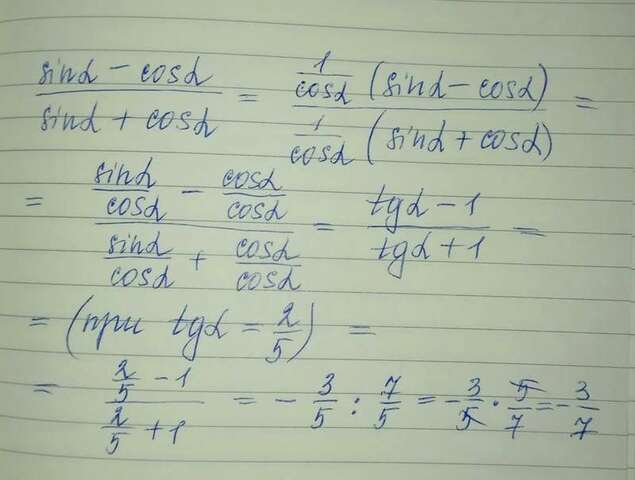 (sinα − cosα)/(sinα + cosα) = (1/cosα (sinα − cosα))/(1/cosα (sinα + cosα)) =
= (sinα/cosα − cosα/cosα)/(sinα/cosα + cosα/cosα) = (tgα − 1)/(tgα + 1) =
= (при tgα = 2/5) =
= (2/5 − 1)/(2/5 + 1) = − 3/5 : 7/5 = −3/5 · 5/7 = −3/7